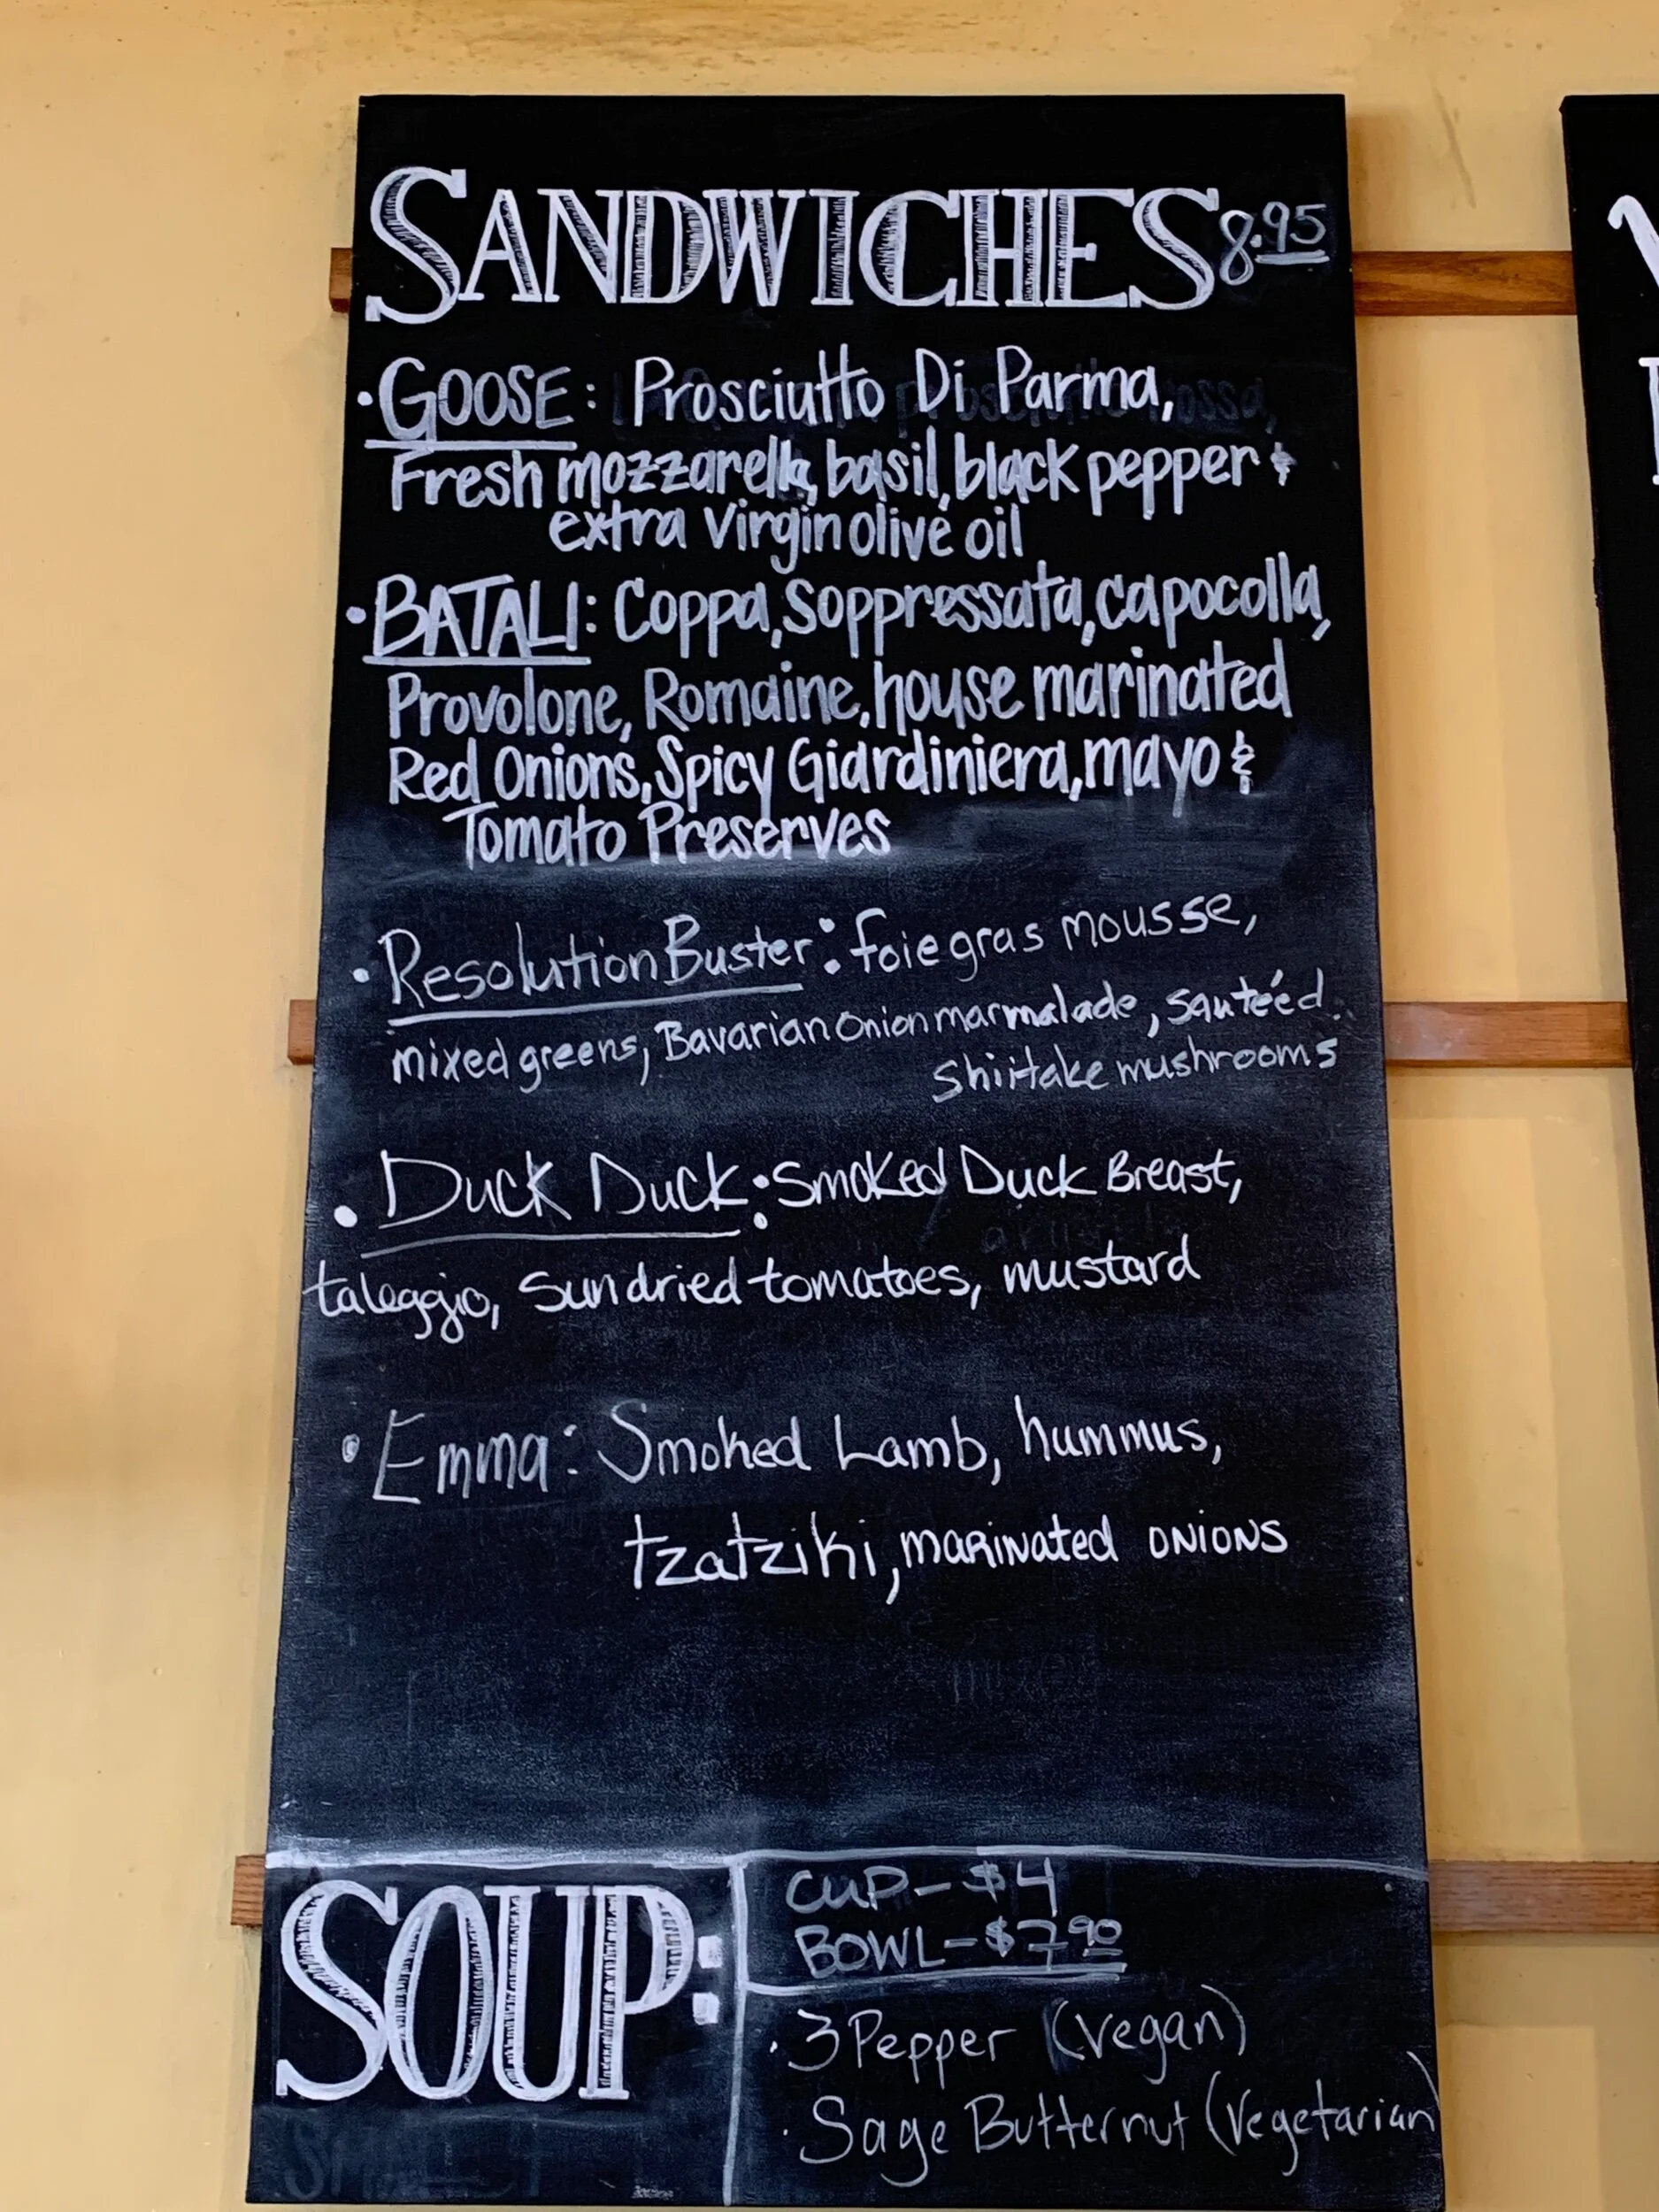 SANDWICHES 8.95
• GOOSE: Prosciutto Di Parma,
Fresh mozzarella, basil, black pepper &
extra virgin olive oil
• BATALI: Coppa, Soppressata, capocolla,
Provolone, Romaine, house marinated
Red Onions, Spicy Giardiniera, mayo &
Tomato Preserves
• Resolution Buster: foie gras mousse,
mixed greens, Bavarian Onion marmalade, sauteéd
Shiitake mushrooms
• Duck Duck: Smoked Duck Breast,
taleggio, Sundried tomatoes, mustard
• Emma: Smoked Lamb, hummus,
tzatziki, marinated onions
SOUP:
CUP - $4
BOWL - $7.90
• 3 Pepper (vegan)
• Sage Butternut (Vegetarian)